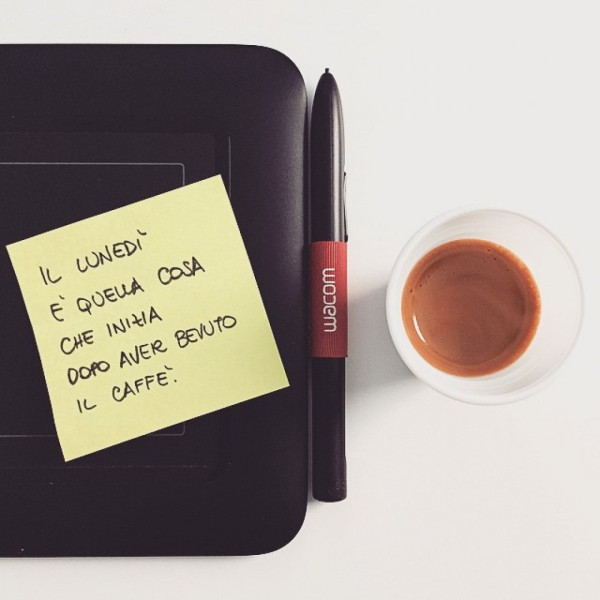 IL LUNEDÌ
È QUELLA COSA
CHE INIZIA
DOPO AVER BEVUTO
IL CAFFÈ.
wacom